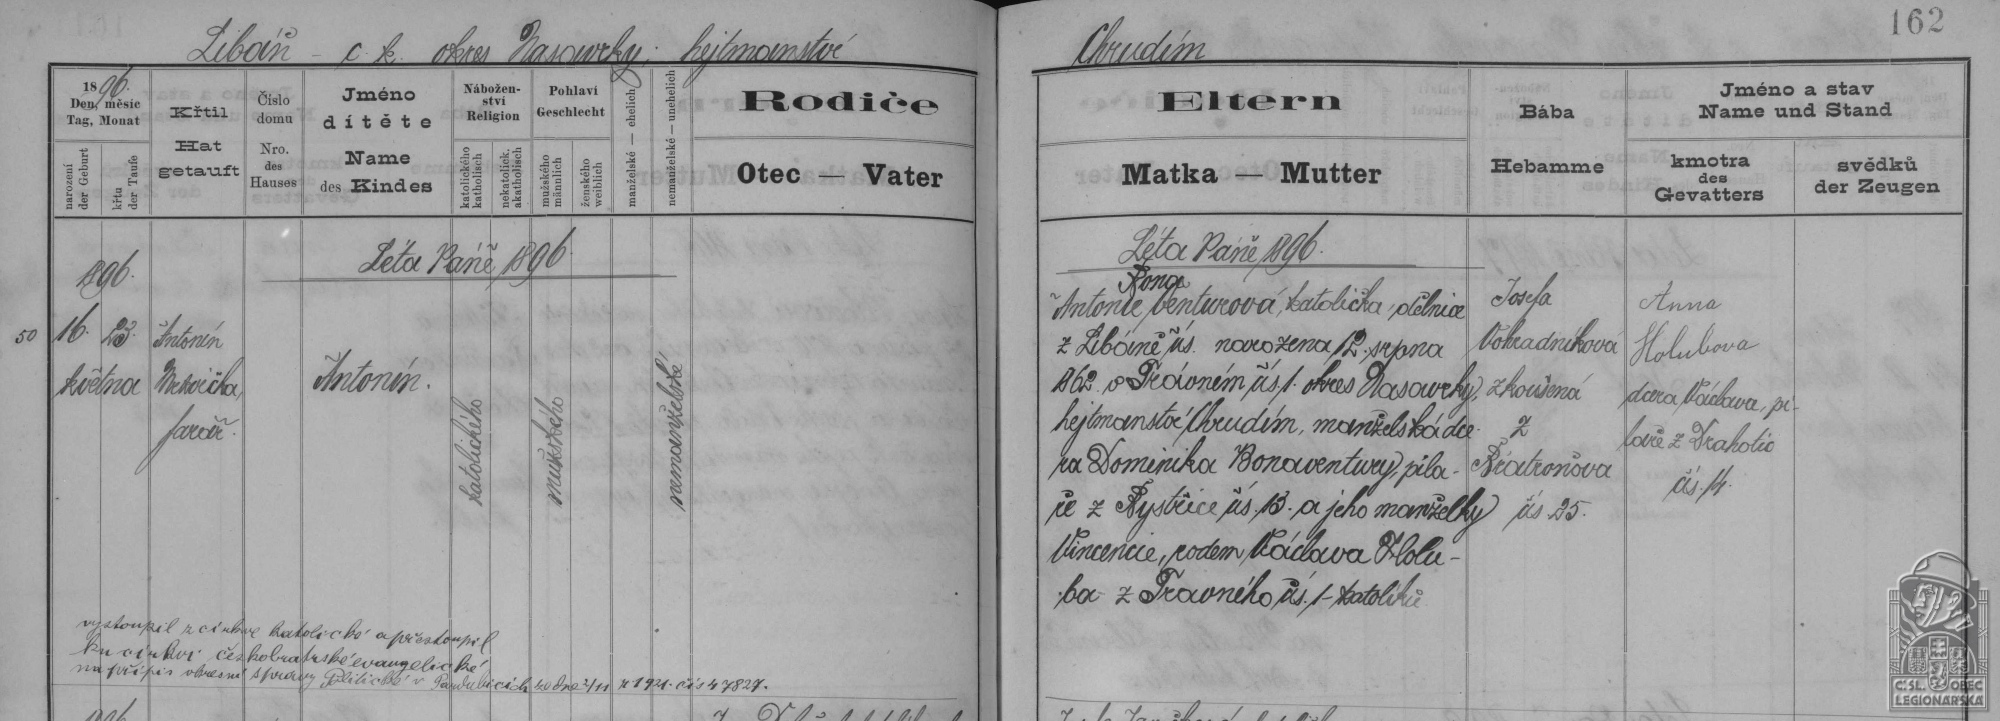 162
Libáň – c. k. okres Nasavrky; hejtmanství
Chrudím
1896.
Den, měsíc
Tag, Monat
narození
der Geburt
křtu
der Taufe
Křtil
Hat
getauft
Číslo
domu
Nro.
des
Hauses
Jméno
dítěte
Name
des Kindes
Nábožen-
ství
Religion
katolického
katholisch
nekatolick.
akatholisch
Pohlaví
Geschlecht
mužského
männlich
ženského
weiblich
manželské — ehelich
nemanželské — unehelich
Rodiče
Otec — Vater
Eltern
Matka — Mutter
Bába
Hebamme
Jméno a stav
Name und Stand
kmotra
des
Gevatters
svědků
der Zeugen
Léta Páně 1896.
Léta Páně 1896.
1896.
50
16. 23.
května
Antonín
farář.
Antonín.
katolického
mužského
nemanželské
Bona
Antonie venturová, katolička, dělnice
z Libáně čís. narozena 12. srpna
1862. v Trávném čís. 1. okres Nasavrky,
hejtmanství Chrudím, manželská dce-
ra Dominika Bonaventury, pila-
ře z Bystřice čís. 13. a jeho manželky
Vincencie, rodem Václava Holu-
ba z Trávného čís. 1 katolíků
Josefa
Vohradníková
zkoušená
z
čís. 25.
Anna
Holubova
dcera Václava, pi-
laře z Drahotic
čís. 14.
vystoupil z církve katolické a přestoupil
ku církvi českobratrské evangelické
na přípis okresní správy Politické v Pardubicích ze dne 2/11 r 1921. čís 47827.
1896
ČS. OBEC
LEGIONÁŘSKÁ